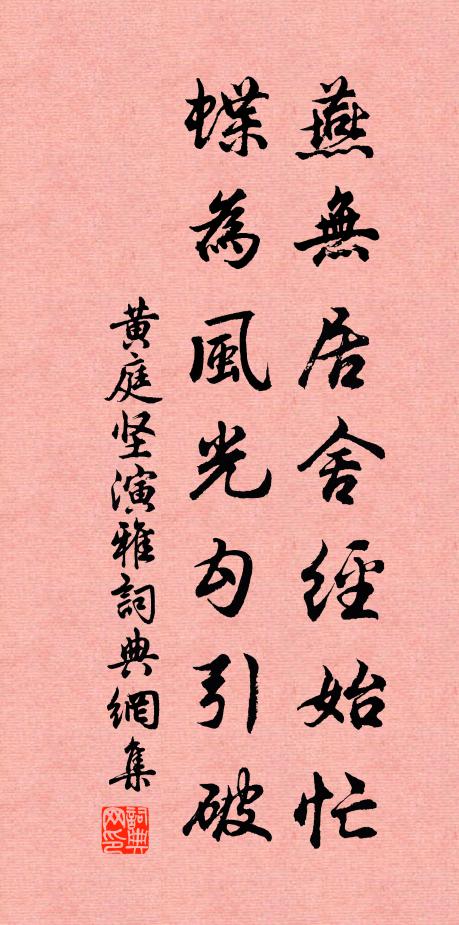 燕無居舍經始忙
蝶為風光勾引破
黄庭坚演雅詞典網集
詞典网印